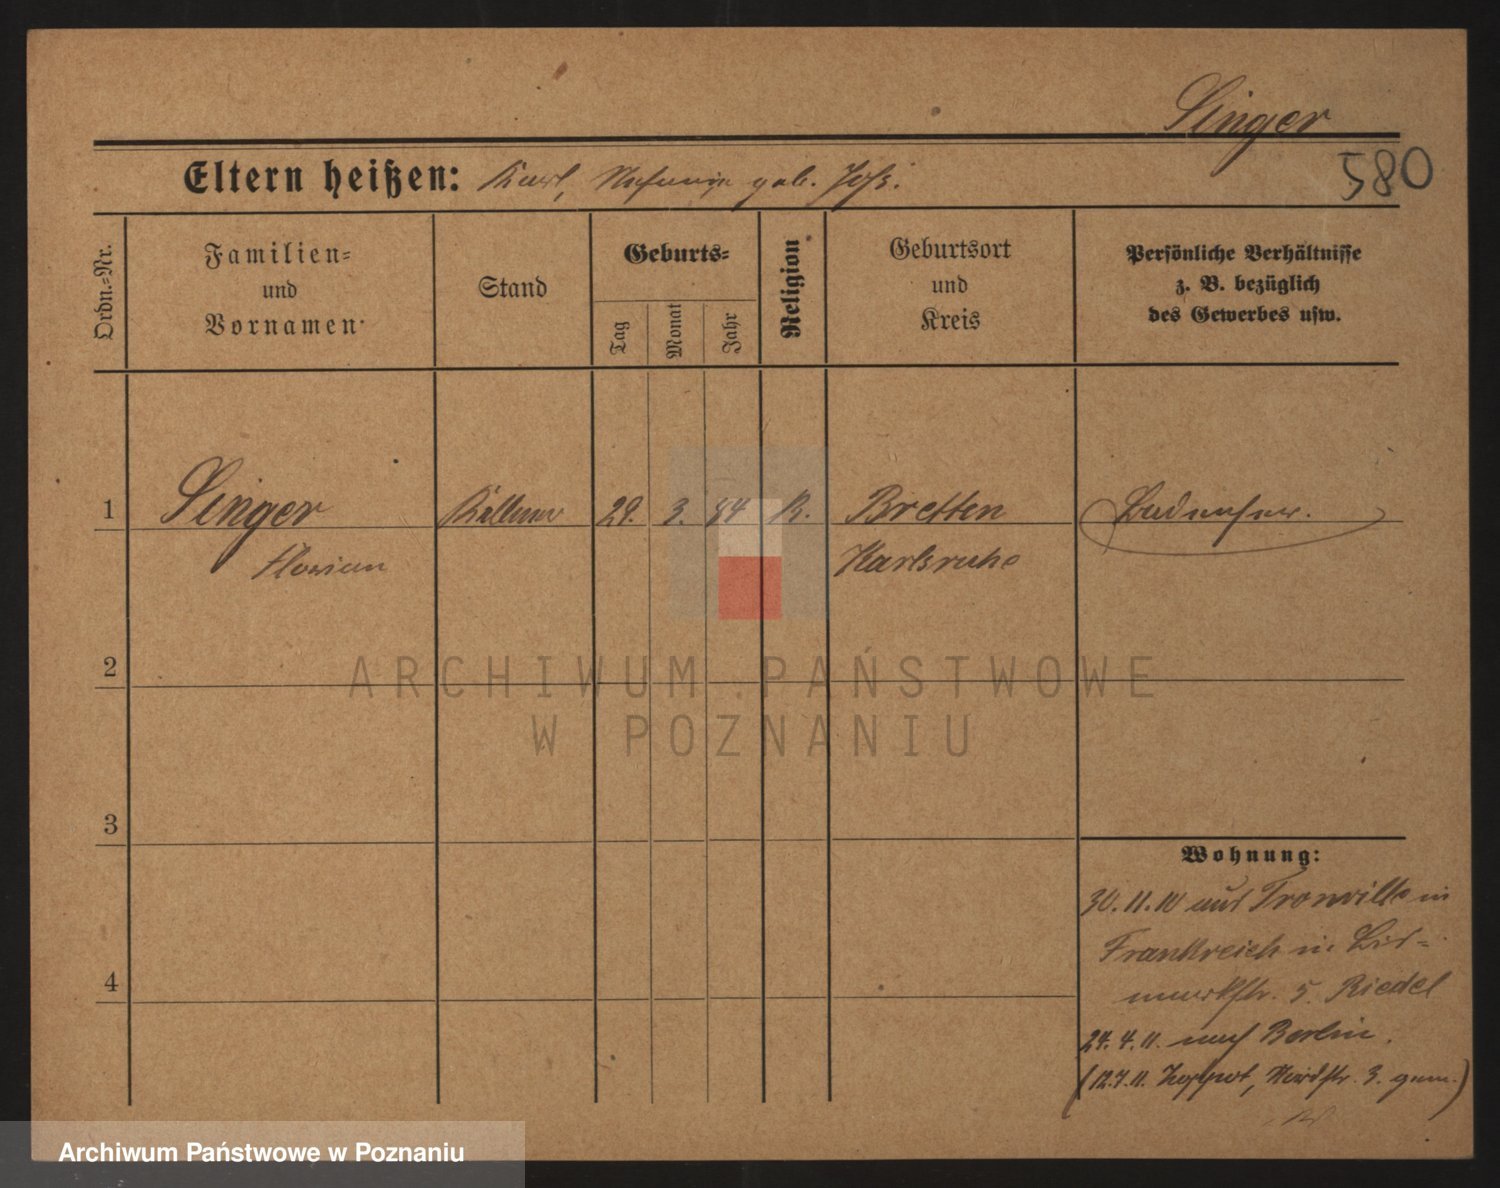 Singer
580
Eltern heißen: Karl, Stefanie geb.
Ordn.=Nr.
Familien=
und
Vornamen
Stand
Geburts=
Tag
Monat
Jahr
Religion
Geburtsort
und
Kreis
Persönliche Verhältnisse
z. B. bezüglich
des Gewerbes usw.
1 Singer Kellner 29. 3. 84 K. Bretten Badenser.
Florian Karlsruhe
2
3
4
Wohnung:
30.11.10 aus Tronville in
Frankreich in Bis=
markstr. 5. Riedel
24.4.11. nach Berlin.
(12.7.11. Zoppot, Nordstr. 3. gem.)
ARCHIWUM PAŃSTWOWE
W POZNANIU
Archiwum Państwowe w Poznaniu